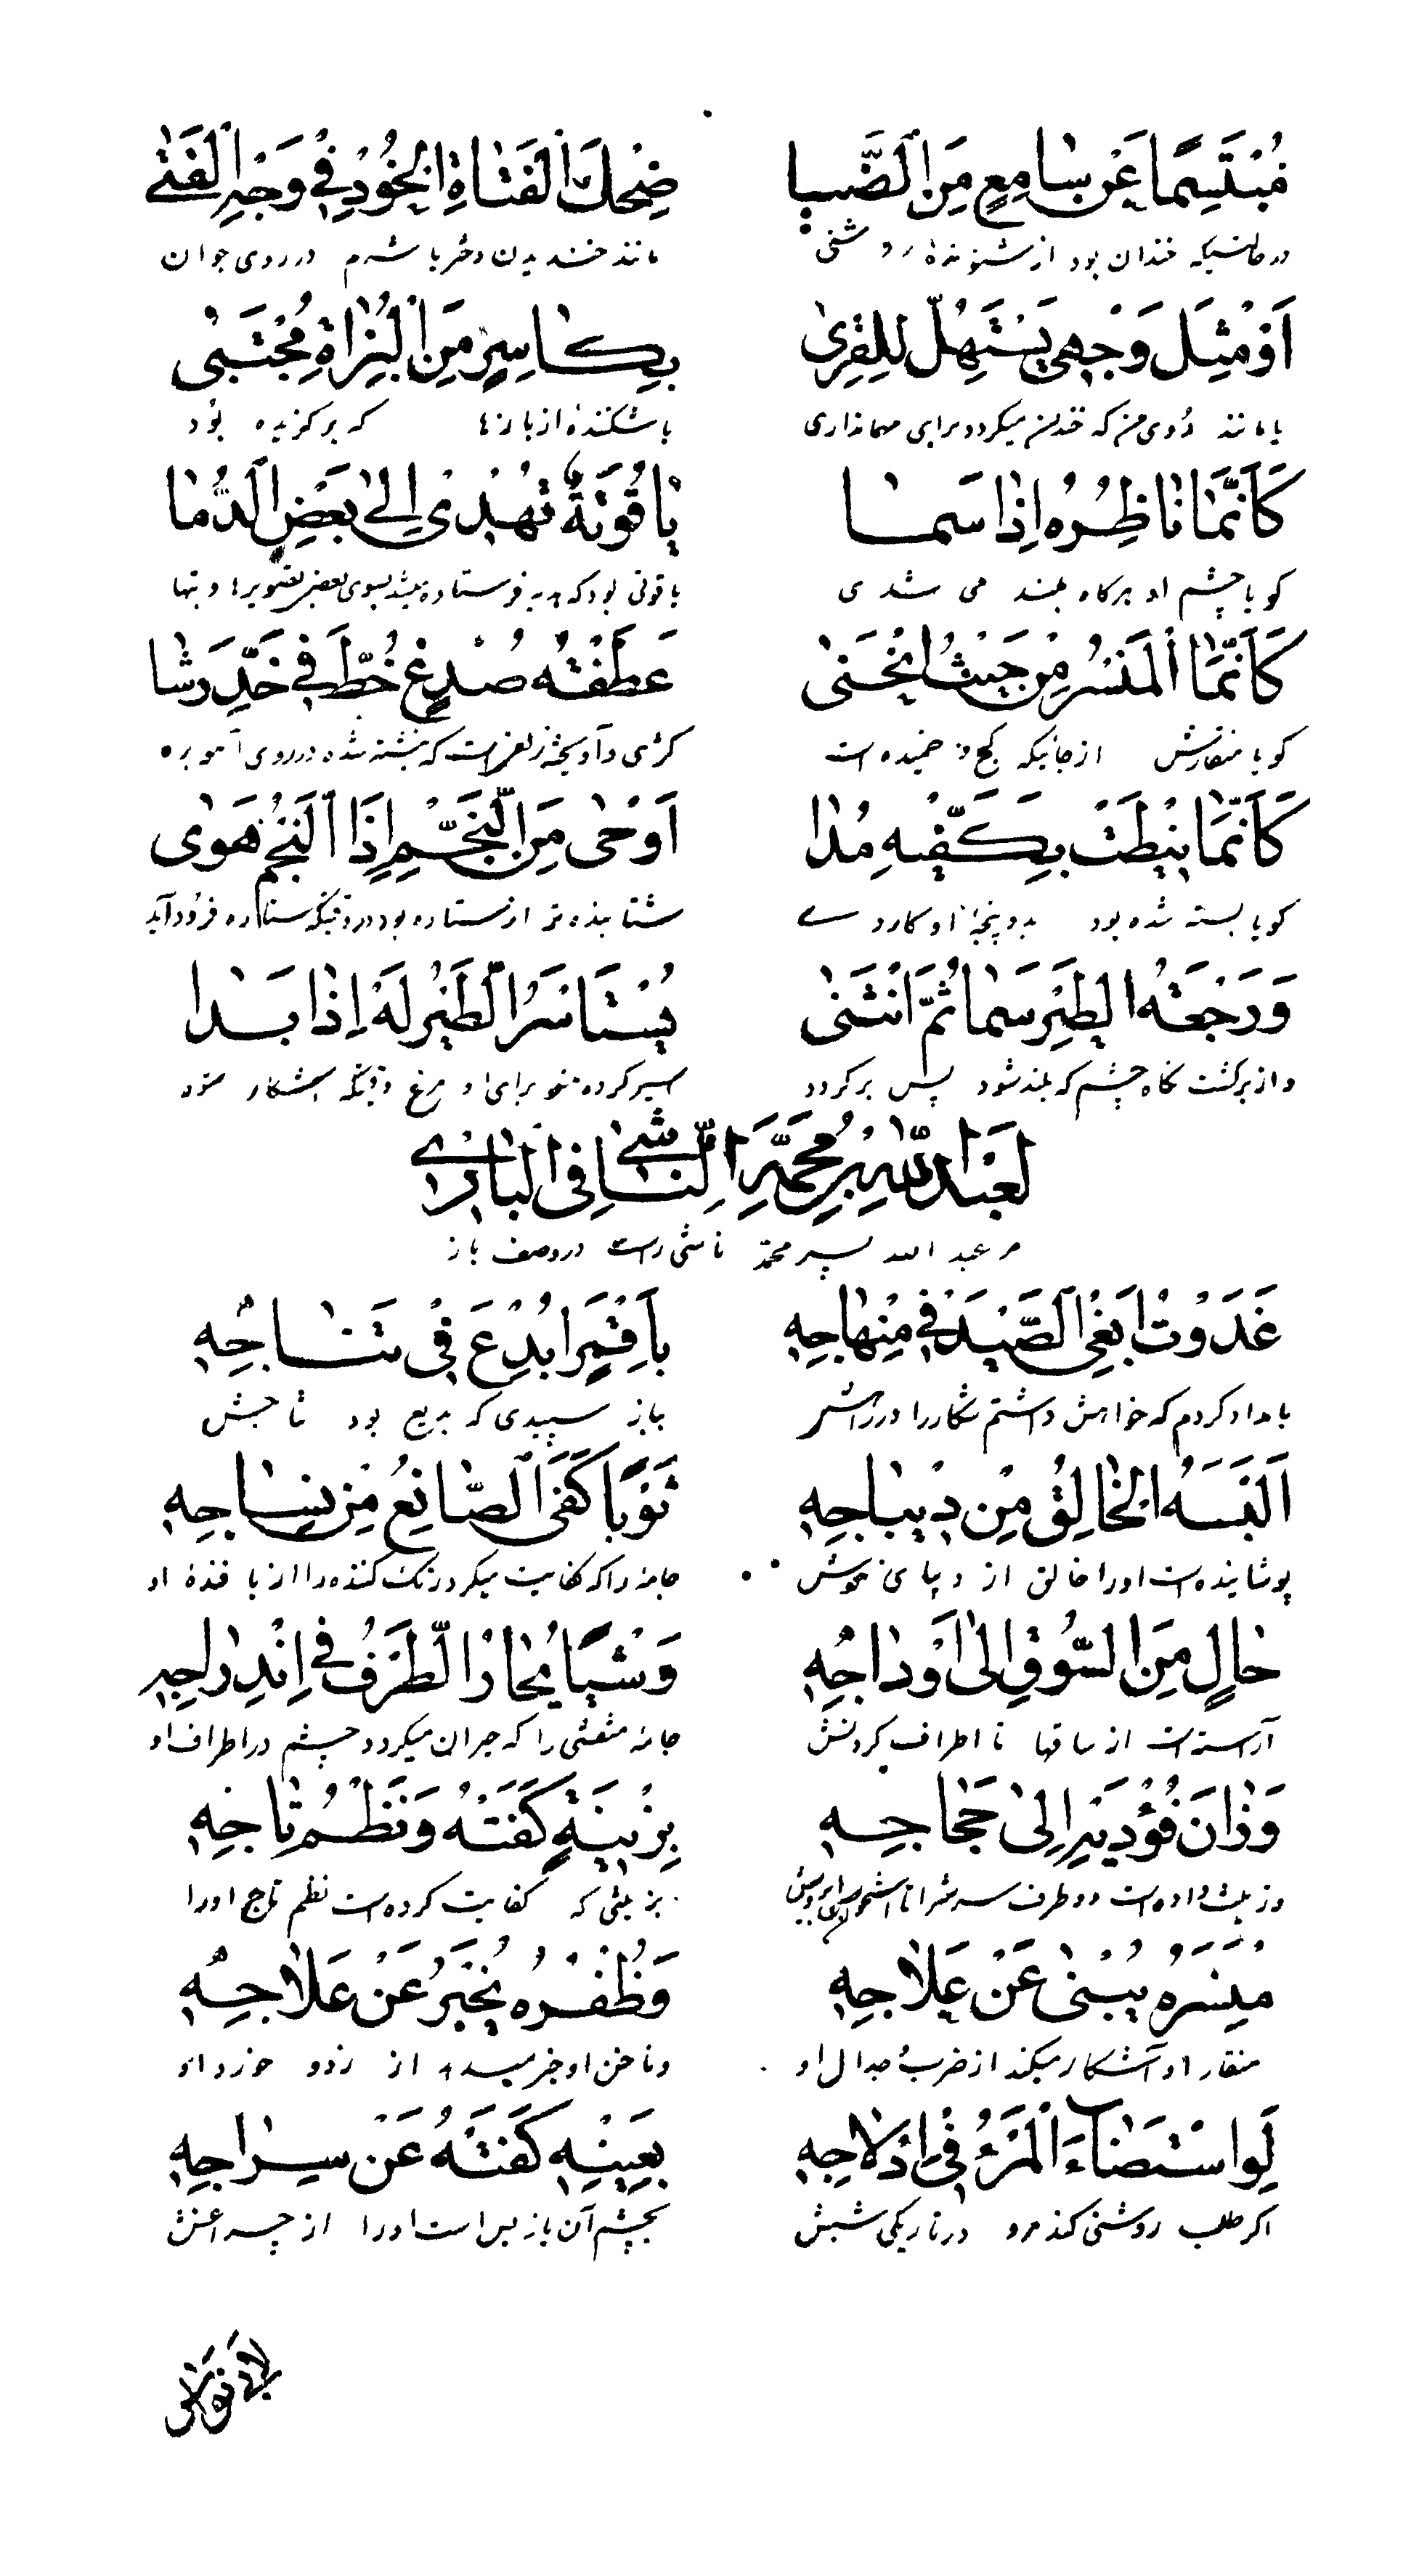 مُبْتَسِمًا عَنْ سَامِعٍ مِنَ الضَّبَا ضِحْكَ الْفَتَاةِ الْخُوْدِ فِي وَجْهِ الْفَتٰى
در حالتیکه خندان بود از شنوندهٔ روشنی مانند خندیدن دختر با شرم در روی جوان
اَوْ مِثْلَ وَجْهِى يَسْتَهِلُّ لِلقِرٰى بِكَاسِرٍ مِنَ الْبُزَاةِ مُجْتَبٰى
یا مانند روی من که خندان میکردد برای مهمانداری باشکنندهٔ از بازها که برکزیده بود
كَاَنَّمٰا نٰاظِرُهُ اِذٰا سَمٰا يٰاقُوتَةٌ تُهْدٰى اِلىٰ بَعْضِ الدُّمٰا
کویا چشم او هرکاه بلند می شدی یاقوتی بود که هدیه فرستاده میشد بسوی بعض تصویرها و بتها
كَاَنَّمَا الْمَنْسِرُ مِنْ حَيْثُ انْحَنٰى عَطْفَةُ صُدْغٍ خُطَّ فِي خَدِّ رَشَا
کویا منقارش از جائیکه کج و خمیده است کژی و آویخته زلفی است که نبشته شده در روی آهو بره
كَاَنَّمَا نِيْطَتْ بِكَفَّيْهِ مُدٰا اَوْحٰى مِنَ النَّجْمِ اِذَا النَّجْمُ هَوٰى
کویا بسته شده بود بدو پنجهٔ او کاردے شتابنده تر از ستاره بود در وقتیکه ستاره فرود آید
وَرَجْعَةُ الطَّيْرِ سَمَا ثُمَّ انْثَنٰى يُسْتَاسَرُ الطَّيْرُ لَهُ اِذٰا بَدٰا
و از برکشت نکاه چشم که بلند شود پس برکردد اسیر کرده شود برای او مرغ وقتیکه آشکار شود
لِعَبْدِ اللّٰهِ بْنِ مُحَمَّدٍ النّٰاشِي فِي الْبٰازِى
مر عبد الله پسر محمّد ناشی راست در وصف باز
غَدَوْتُ اَبْغِي الصَّيْدَ فِي مِنْهٰاجِهِ بِاَقْمَرٍ اُبْدِعَ فِي نَتَاجِهِ
بامداد کردم که خواهش داشتم شکار را در راهش بباز سپیدی که بدیع بود نتاجش
اَلْبَسَهُ الْخٰالِقُ مِنْ دِيبٰاجِهِ ثَوْبًا كَفَى الصّٰانِعَ مِنْ نِسٰاجِهِ
پوشاینده است او را خالق از دیبای خوش جامهٔ را که کفایت میکرد رنک کننده را از بافندهٔ او
حٰالٍ مِنَ السُّوْقِ اِلىٰ اَوْدٰاجِهِ وَشْيًا يُحٰارُ الطَّرْفُ فِي اِنْدِرٰاجِهِ
آراسته است از ساقها تا اطراف کردنش جامهٔ منقشی را که حیران میکردد چشم در اطراف او
وَزٰانَ فُؤْدَيْهِ اِلىٰ حَجٰاجِهِ بِزِيْنَةٍ كَفَتْهُ وَنَظْمِ تٰاجِهِ
و زینت داده است دو طرف سرش را تا استخوان ابرویش بزینتی که کفایت کرده است نظم تاج او را
مِنْسَرُهُ يُبْنٰى عَنْ عِلاٰجِهِ وَظُفْرُهُ يُخْبِرُ عَنْ عَلاٰجِهِ
منقار او آشکار میکند از ضرب و جدال او و ناخن او خبر میدهد از زد و خورد او
لَوِ اسْتَضٰاءَ الْمَرْءُ فِي اِدْلاٰجِهِ بِعَيْنِهِ كَفَتْهُ عَنْ سِرٰاجِهِ
اکر طلب روشنی کند مرد در تاریکی شبش بچشم آن باز بس است او را از چراغش